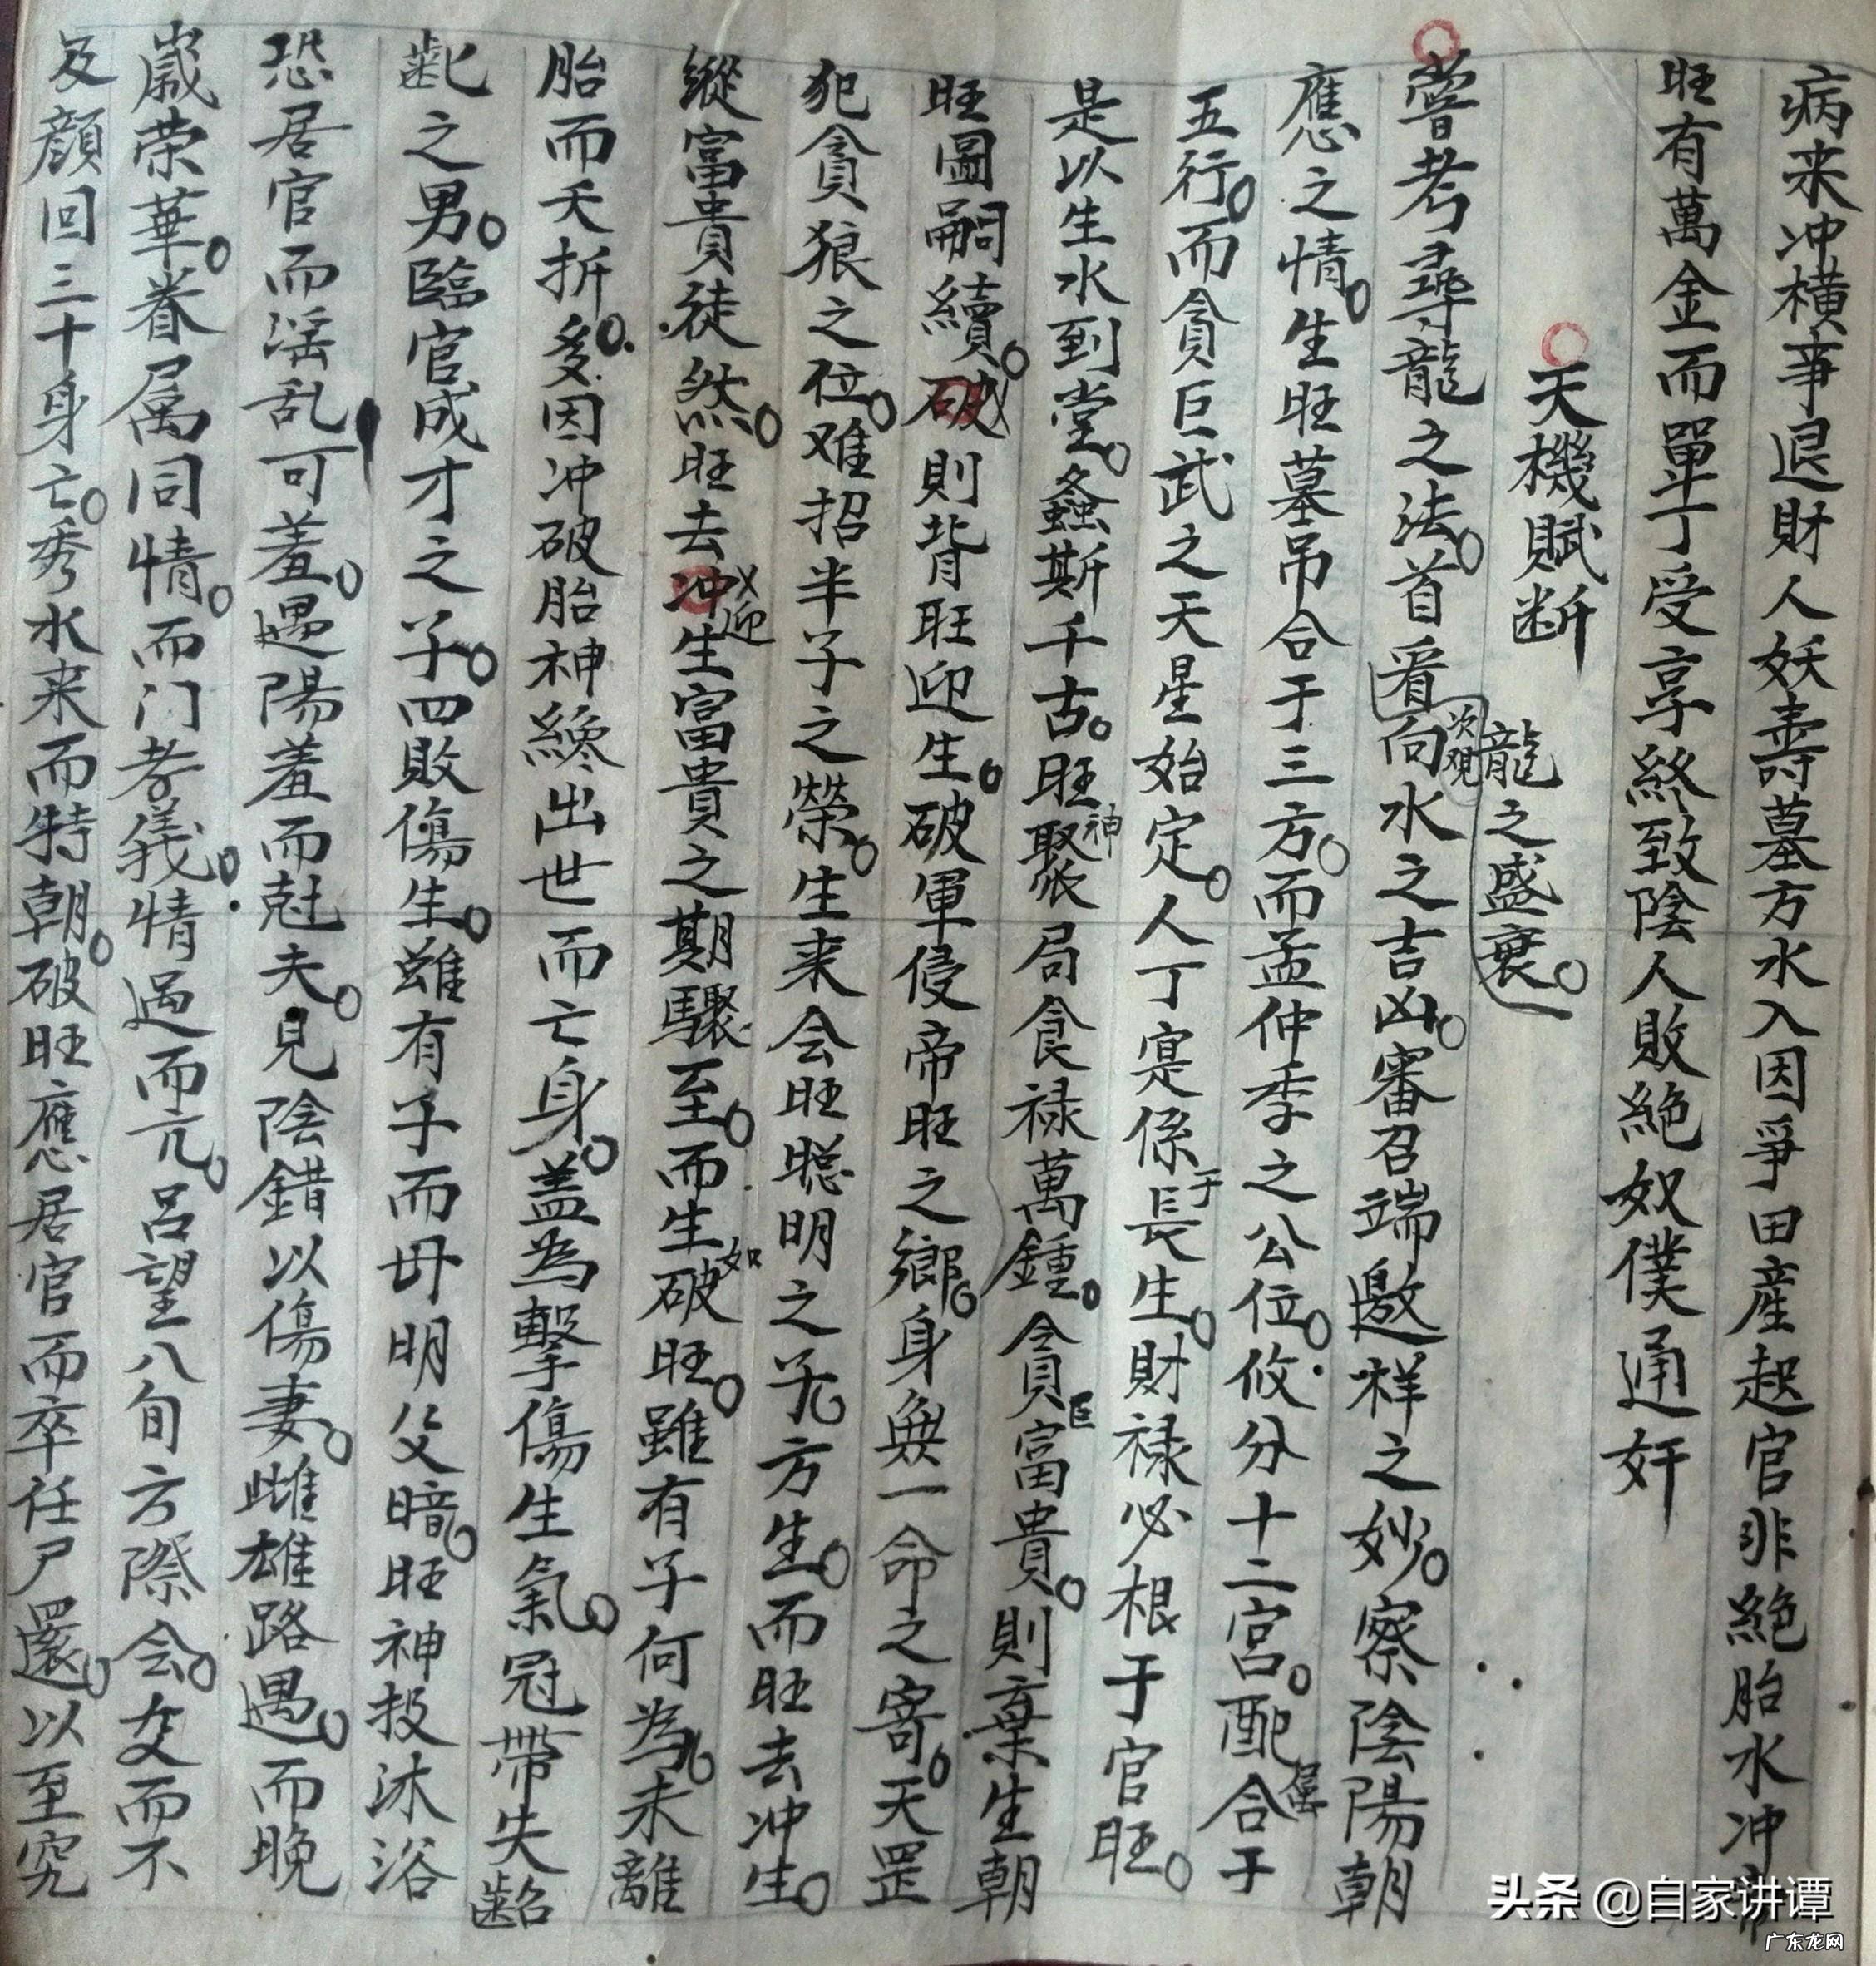 病来冲横事退財人妖壽墓方水入因爭田産起官非絶胎水冲
旺有萬金而單丁受享終致陰人敗絶奴僕通奸
天機賦断
龍之盛衰
次观
嘗考尋龍之法首看向水之吉凶審召端邀祥之妙察陰陽朝
應之情生旺墓吊合于三方而孟仲季之公位攸分十二宫配合于
屬
五行而貪巨武之天星始定人丁寔係長生財禄必根于官旺
于
是以生水到堂螽斯千古旺聚局食禄萬鍾貪富貴則棄生朝
神
巨
旺圖嗣續破則背旺迎生破軍侵帝旺之鄉身無一命之寄天罡
犯貪狼之位难招半子之榮生来会旺聪明之子方生而旺去冲生
縱富貴徒然旺去冲生富貴之期驟至而生破旺雖有子何為未離
迎
如
胎而夭折多因冲破胎神纔出世而亡身盖為擊傷生氣冠帶失齠
齔之男臨官成才之子四敗傷生雖有子而毋明父暗旺神投沐浴
恐居官而淫乱可羞遇陽羞而尅夫見陰錯以傷妻雌雄路遇而晚
歲荣華眷属同情而门孝義情過而亢吕望八旬方際会交而不
及顔回三十身亡秀水来而特朝破旺應居官而卒任尸還以至究
头条 @自家讲谭
广东龙网